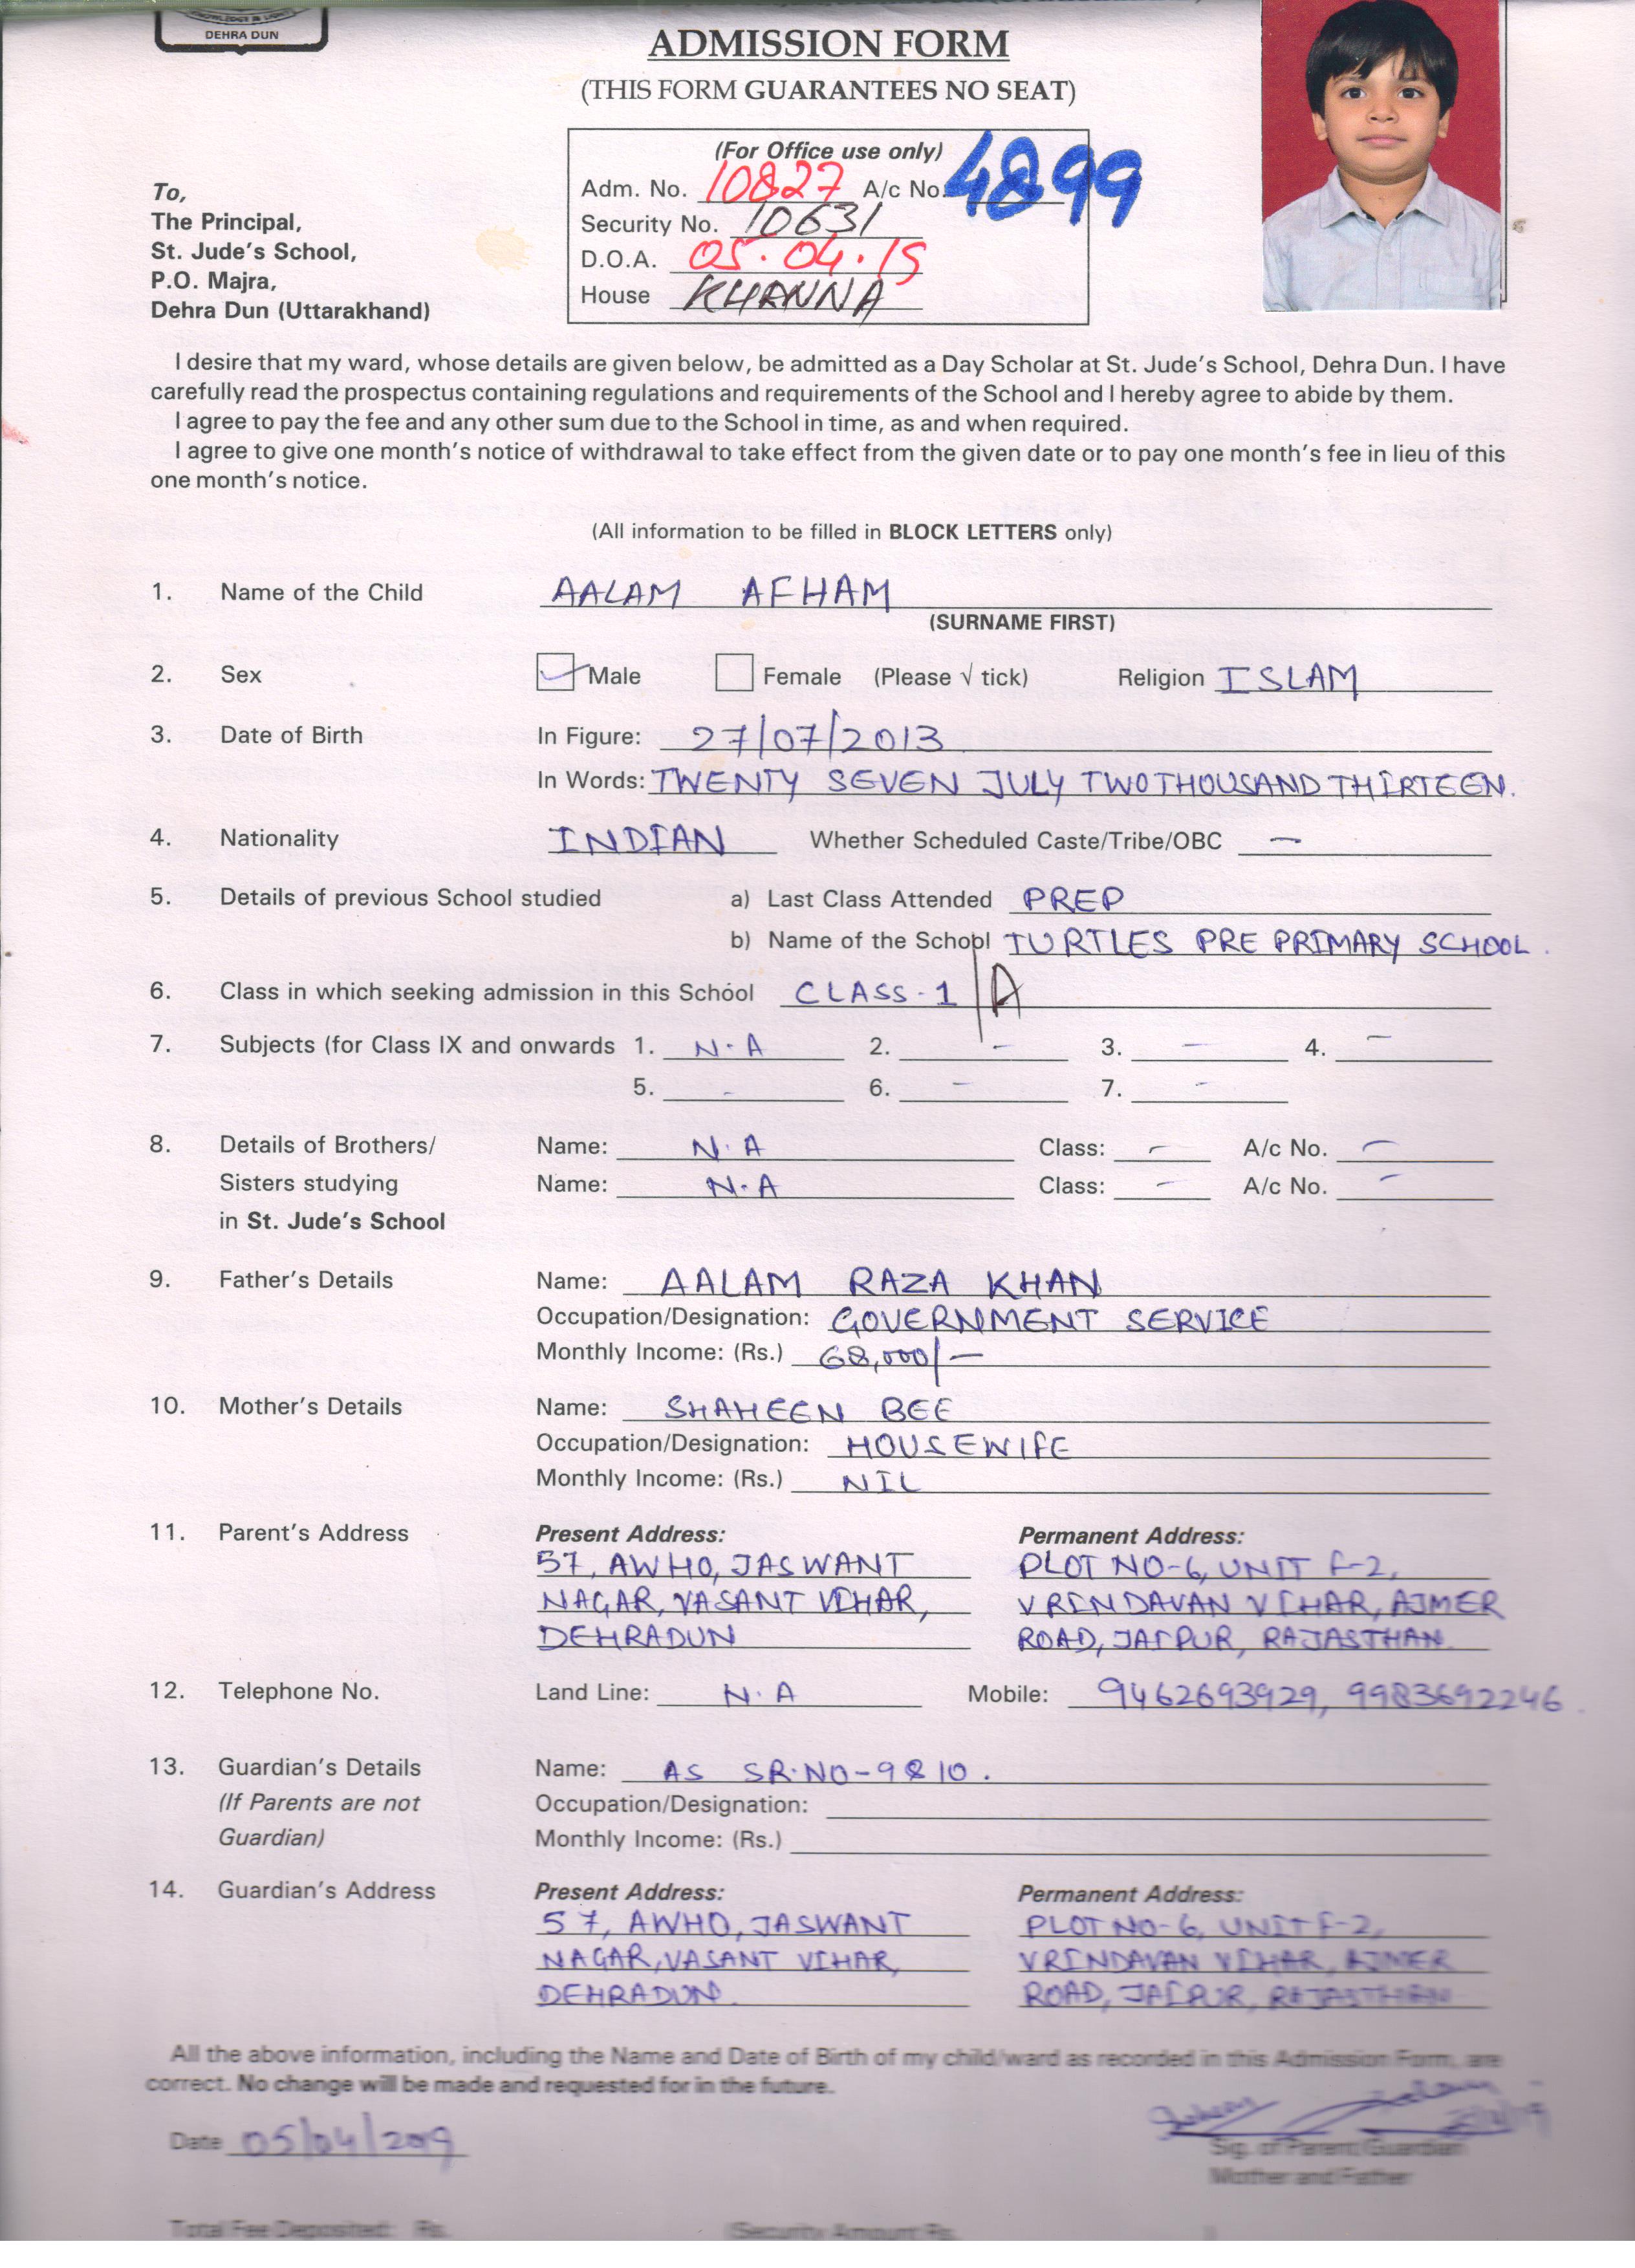 KNOWLEDGE IS LIGHT
DEHRA DUN
ADMISSION FORM
(THIS FORM GUARANTEES NO SEAT)
(For Office use only)
Adm. No. 10827 A/c No. 4899
Security No. 10631
D.O.A. 05.04.19
House KHANNA
To,
The Principal,
St. Jude's School,
P.O. Majra,
Dehra Dun (Uttarakhand)
I desire that my ward, whose details are given below, be admitted as a Day Scholar at St. Jude's School, Dehra Dun. I have
carefully read the prospectus containing regulations and requirements of the School and I hereby agree to abide by them.
I agree to pay the fee and any other sum due to the School in time, as and when required.
I agree to give one month's notice of withdrawal to take effect from the given date or to pay one month's fee in lieu of this
one month's notice.
(All information to be filled in BLOCK LETTERS only)
1. Name of the Child AALAM AFHAM
(SURNAME FIRST)
2. Sex Male Female (Please √ tick) Religion ISLAM
3. Date of Birth In Figure: 27/07/2013
In Words: TWENTY SEVEN JULY TWO THOUSAND THIRTEEN.
4. Nationality INDIAN Whether Scheduled Caste/Tribe/OBC —
5. Details of previous School studied a) Last Class Attended PREP
b) Name of the School TURTLES PRE PRIMARY SCHOOL.
6. Class in which seeking admission in this School CLASS-1/A
7. Subjects (for Class IX and onwards 1. N.A 2. - 3. - 4. -
5. - 6. - 7. -
8. Details of Brothers/ Name: N.A Class: - A/c No. -
Sisters studying Name: N.A Class: - A/c No. -
in St. Jude's School
9. Father's Details Name: AALAM RAZA KHAN
Occupation/Designation: GOVERNMENT SERVICE
Monthly Income: (Rs.) 68,000/-
10. Mother's Details Name: SHAHEEN BEE
Occupation/Designation: HOUSEWIFE
Monthly Income: (Rs.) NIL
11. Parent's Address Present Address: Permanent Address:
57, AWHO, JASWANT PLOT NO-6, UNIT F-2,
NAGAR, VASANT VIHAR, VRINDAVAN VIHAR, AJMER
DEHRADUN ROAD, JAIPUR, RAJASTHAN.
12. Telephone No. Land Line: N.A Mobile: 9462693929, 9983692246.
13. Guardian's Details Name: AS SR.NO-9 & 10.
(If Parents are not Occupation/Designation:
Guardian) Monthly Income: (Rs.)
14. Guardian's Address Present Address: Permanent Address:
57, AWHO, JASWANT PLOT NO-6, UNIT F-2,
NAGAR, VASANT VIHAR, VRINDAVAN VIHAR, AJMER
DEHRADUN. ROAD, JAIPUR, RAJASTHAN
All the above information, including the Name and Date of Birth of my child/ward as recorded in this Admission Form, are
correct. No change will be made and requested for in the future.
Date 05/04/2019
Sig. of Parent/Guardian
Mother and Father
Total Fee Deposited: Rs. (Security Amount Rs.